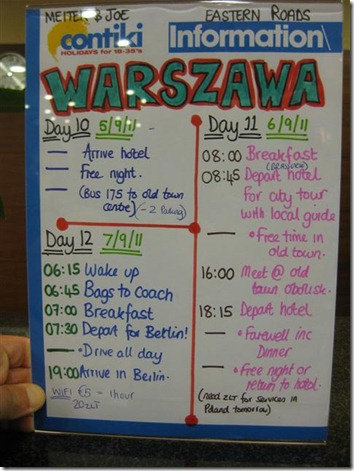 MEITER & JOE
EASTERN ROADS
contiki
HOLIDAYS for 18-35's
Information
WARSZAWA
Day 10 5/9/11
— Arrive hotel
— Free night.
— (Bus 175 to old town
centre)
Day 11 6/9/11
08:00 Breakfast
08:45 Depart hotel
for city tour
with local guide
— • Free time in
old town.
16:00 Meet @ old
town obolisk.
18:15 Depart hotel
— • Farewell inc
Dinner
— • Free night or
return to hotel.
(need ZLT for services in
Poland tomorrow)
Day 12 7/9/11
06:15 Wake up
06:45 Bags to coach
07:00 Breakfast
07:30 Depart for Berlin!
— • Drive all day
19:00 Arrive in Berlin.
WIFI €5 - 1hour
20ZLT